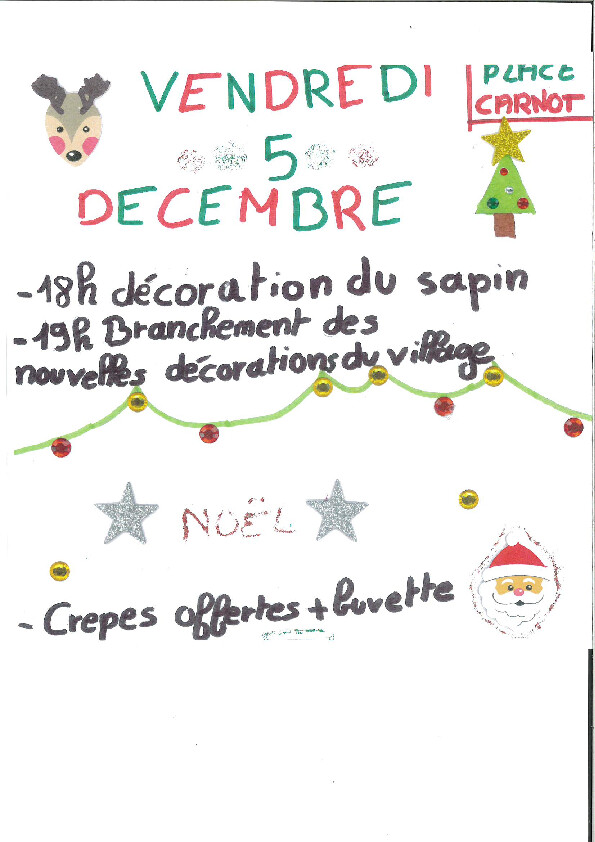 VENDREDI
PLACE
CARNOT
5
DECEMBRE
-18h décoration du sapin
-19h Branchement des
nouvelles décorations du village
NOËL
- Crepes offertes + buvette